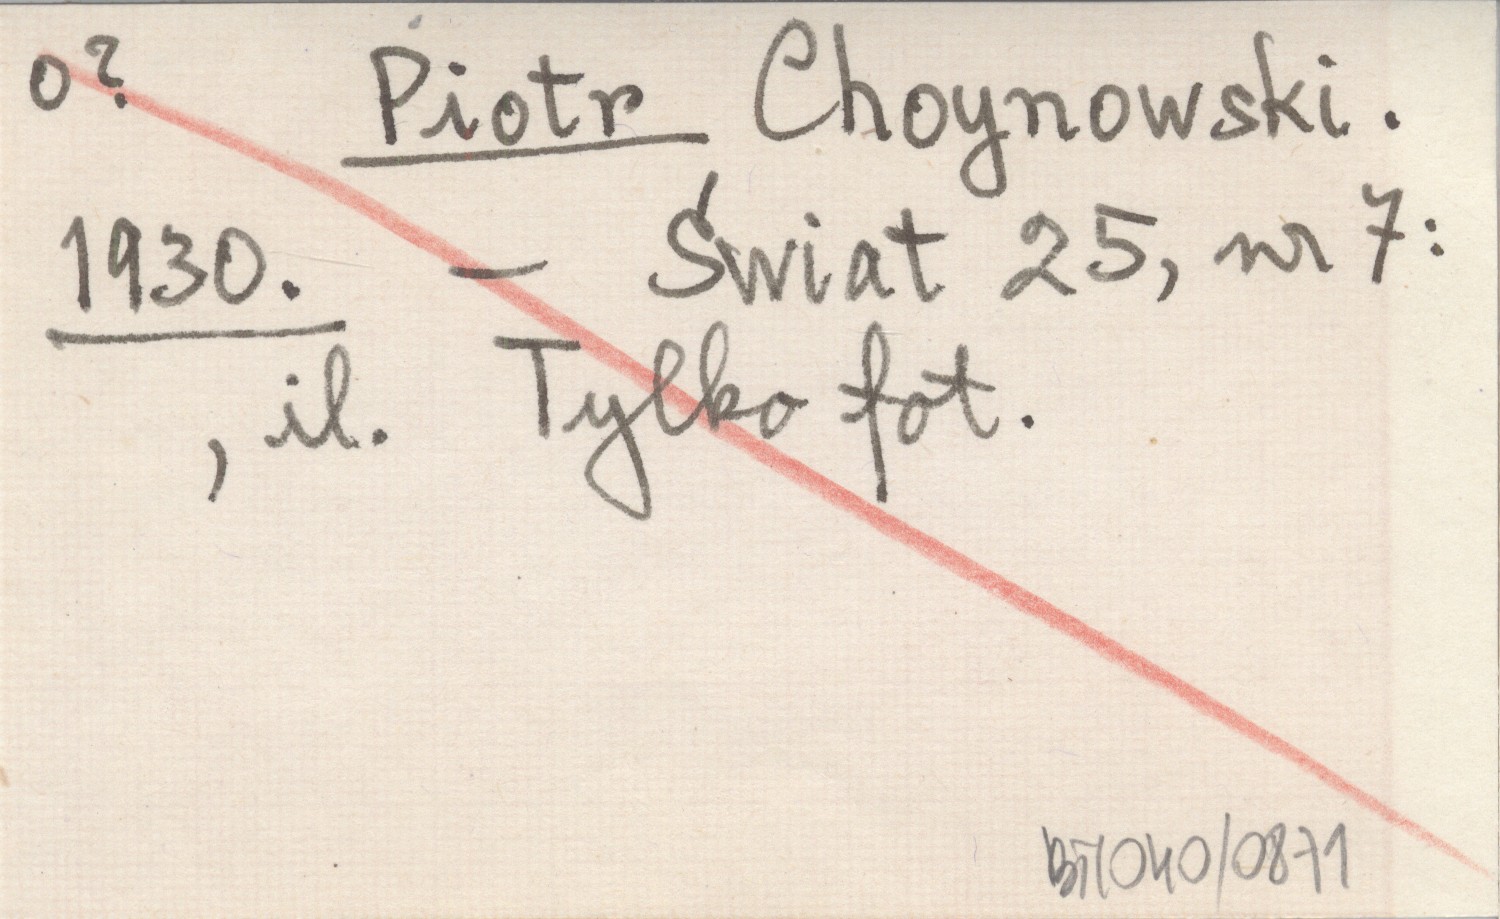 o? Piotr Choynowski.
1930. — Świat 25, nr 7:
, il. Tylko fot.
BTI040/0871